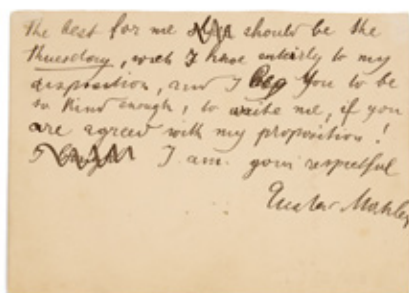 the best for me should be the
thuersday, wich I have entirly to my
disposition, and I beg You to be
so kind enough, to write me, if you
are agreed with my proposition!
I am. your respectful
Gustav Mahler